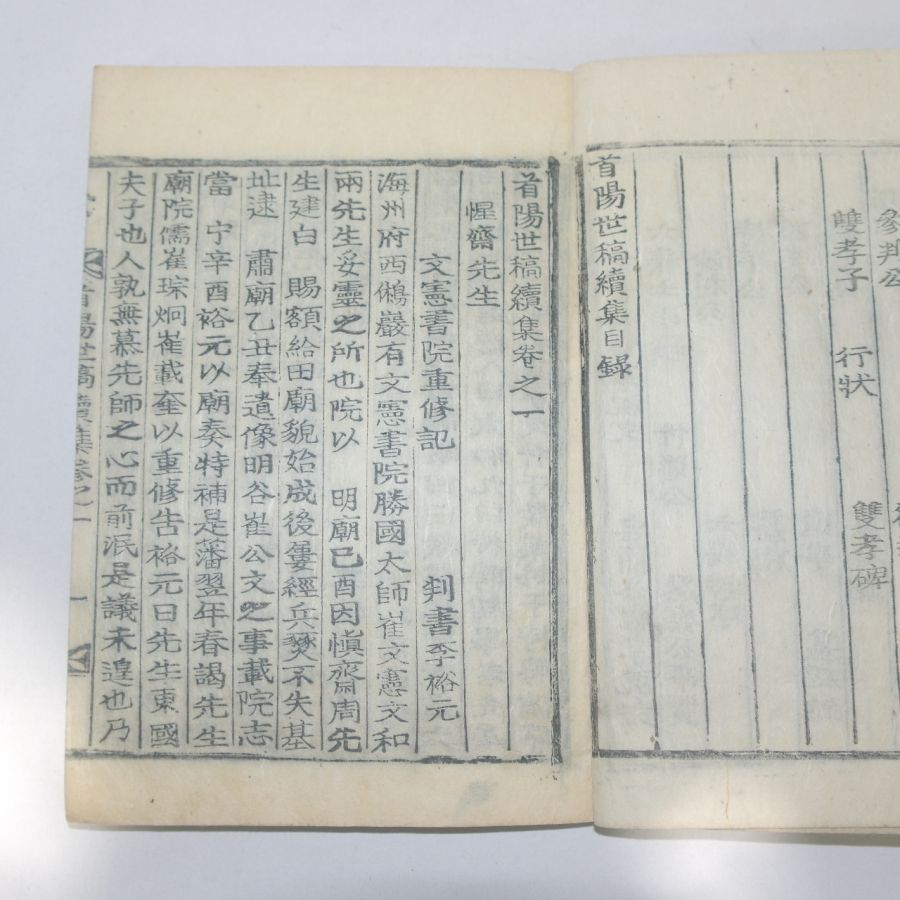 參判公
雙孝子 行狀 雙孝碑
首陽世稿續集目錄
首陽世稿續集卷之一
惺齋先生
文憲書院重修記 判書李裕元
海州府西鵂巖有文憲書院勝國太師崔文憲文和
兩先生妥靈之所也院以 明廟己酉因愼齋周先
生建白 賜額給田廟貌始成後蔞經兵燹不失基
址逮 肅廟乙丑奉遺像明谷崔公文之事載院志
當宁辛酉裕元以廟奏特補是藩翌年春謁先生
廟院儒崔琮炯崔載奎以重修告裕元曰先生東國
夫子也人孰無慕先師之心而前泯是議未遑也乃
首陽世稿續集卷之一 一